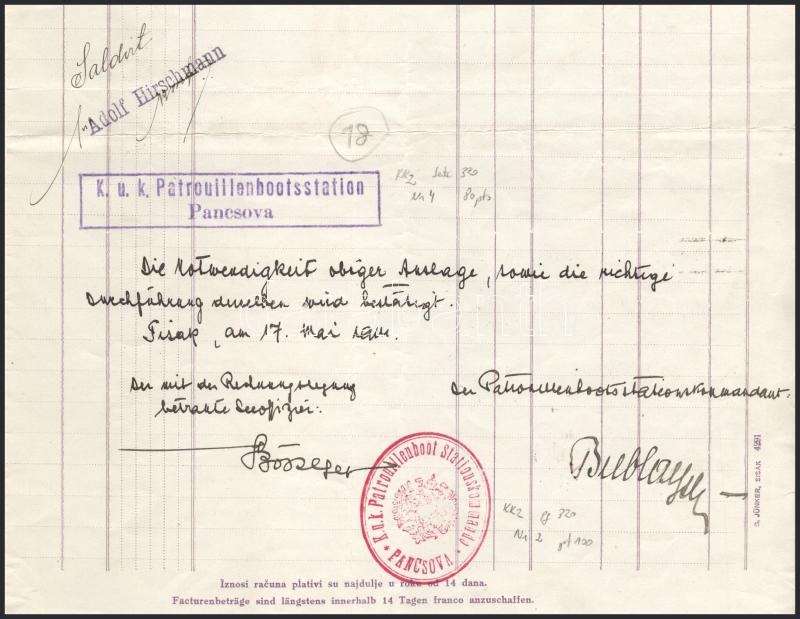 Saldirt
Adolf Hirschmann
18
K. u. k. Patrouillenbootsstation
Pancsova
KK2
320
Nr 4 80 pts
Die Notwendigkeit obiger Auslage, sowie die richtige
Durchführung derselben wird bestätigt.
Sisak, am 17. Mai
Der mit der Rechnungslegung
betraute Seeoffizier:
Der Patrouillenbootsstationskommandant:
K.u.k. Patrouillenboot Stationskommando
* PANCSOVA *
KK2 320
Nr 2 pt 100
S. JÜNKER, SISAK 4291
Iznosi računa plativi su najdulje u roku od 14 dana.
Facturenbeträge sind längstens innerhalb 14 Tagen franco anzuschaffen.